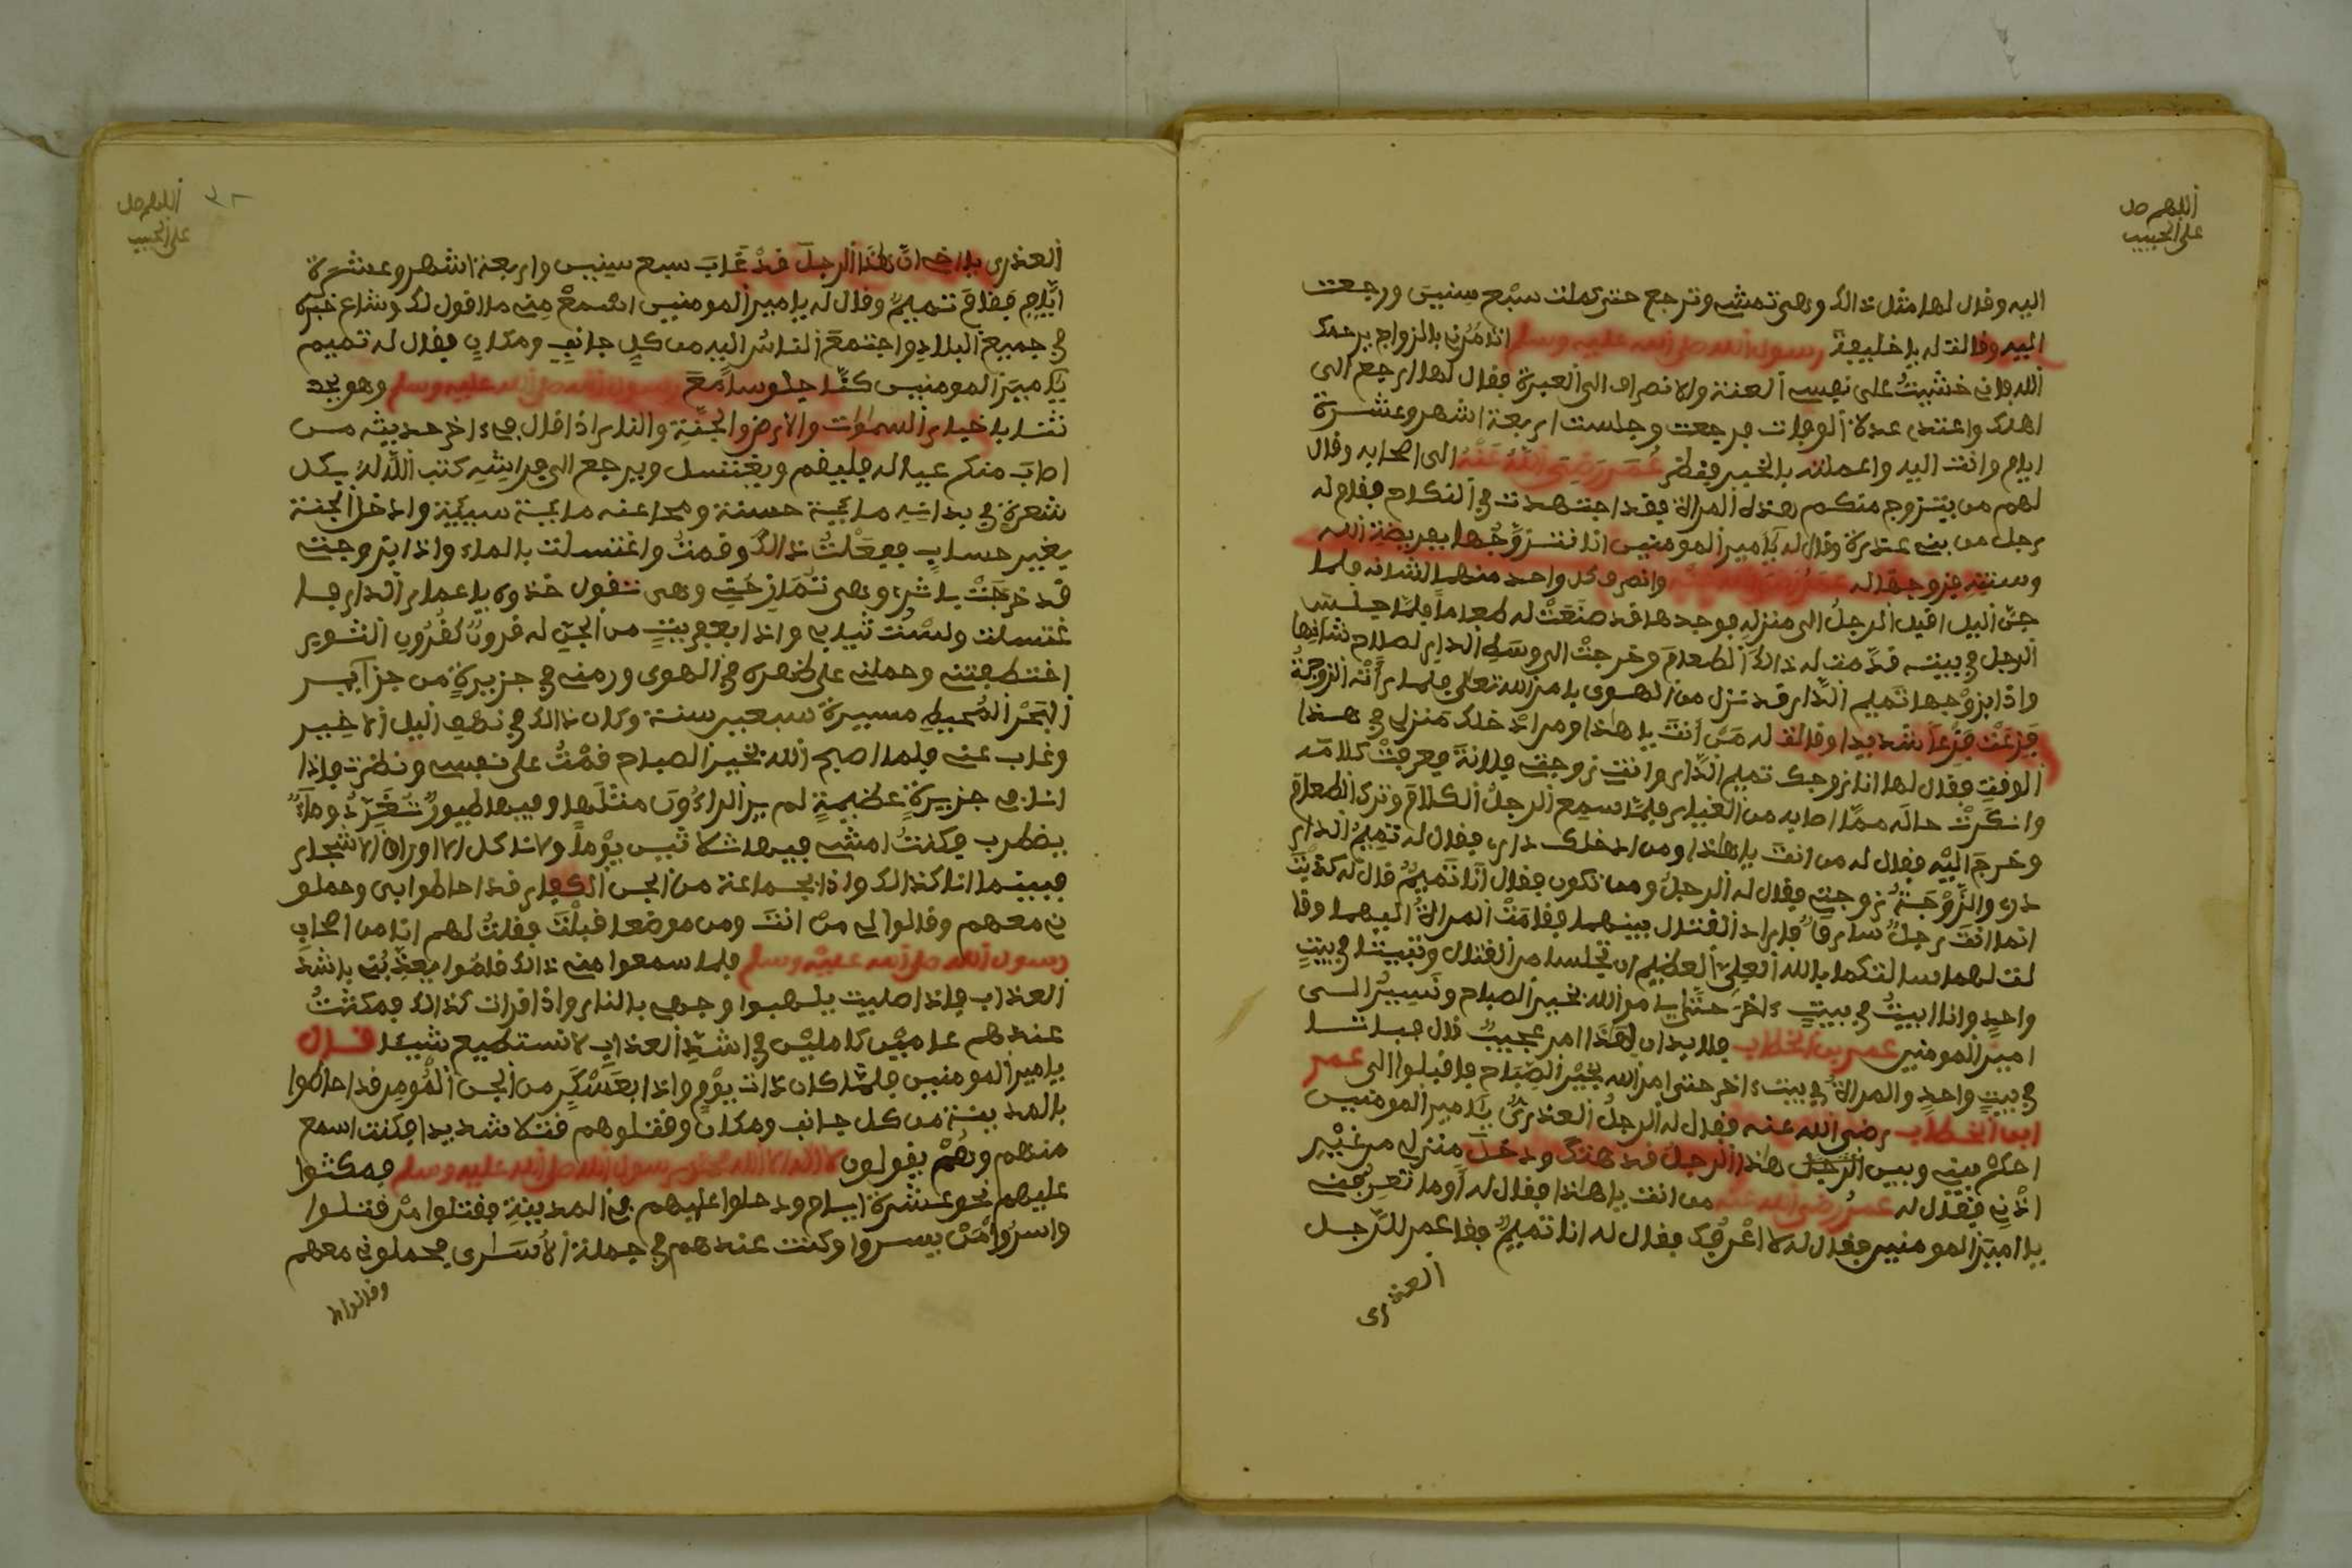 اللهم صل
على الحبيب
اليه وقال لها مثل ذالك وهى تمشى وترجع حتى كملت سبع سنين ورجعت
اليه وقالت له يا خليفة رسول الله صلى الله عليه وسلم انذمرن بالزواج يرحمك
الله فانى خشيت على نفسى العنة والانصراف الى الغيرة فقال لها ارجع الى
اهلك واعتدى عدلا الوفات فرجعت وجلست اربعة اشهر وعشرة
ايام وانت اليه واعملته بالخبر فنظر عمر رضى الله عنه الى اصحابه وقال
لهم من يتزوج منكم هذه المراة فقد اجتهدت في النكاح فقام له
رجل من بنى عذرة وقال له يا امير المومنين انا نتزوجها بفريضة الله
وسنته فزوجها له عمر رضى الله عنه وانصرف كل واحد منهما لشانه فلما
جن اليل اقبل الرجل الى منزله فوجدها قد صنعت له طعاما فلما جلس
الرجل في بيته قدمت له ذالك الطعام وخرجت الى وسط الدار لصلاح شانها
واذا بزوجها تميم الدار قد نزل من الهوى بامر الله تعلى فلما راته الزوجة
فزعت فزعا شديدا وقالت له من انت يا هذا ومن ادخلك منزلى في هذا
الوقت فقال لها انا زوجك تميم الدار وانت زوجتى فلانة فعرفت كلامه
وانكرت حاله مما اصابه من الغبار فلما سمع الرجل الكلام وترك الطعام
وخرج اليه فقال له من انت يا هذا ومن ادخلك دارى فقال له تميم الدار
دارى والزوجة زوجتى فقال له الرجل ومن تكون فقال انا تميم قال له كذبت
انما انت رجل سارقا فاراد القتال بينهما فقامت المراة اليهما وقا
لت لهما سالتكما بالله العلى العظيم ان تجلسا من القتال وتبيتا في بيت
واحد وانا ابيت في بيت ءاخر حتى يا مر الله بخير الصباح ونسير الى
امير المومنين عمر بن الخطاب فلا بد ان لهذا امر عجيب قال فباتا
في بيت واحد والمراة في بيت ءاخر حتى امر الله بخير الصباح فاقبلوا الى عمر
ابن الخطاب رضى الله عنه فقال له الرجل العذرى يا امير المومنين
احكم بينى وبين الرجل هذا الرجل قد هتك ودخل منزلى من غير
اذنى فقال له عمر رضى الله عنه من انت يا هذا فقال له اوما تعرفنى
يا امير المومنين فقال له لا اعرفك فقال له انا تميم فقا عمر للرجل
العذرى
اللهم صل
على الحبيب
العذرى يا اخى ان هذا الرجل قد غاب سبع سنين واربعة اشهر وعشرة
ايام فقام تميم وقال له يا امير المومنين اسمع منى ما اقول لك وشاع خبره
في جميع البلاد واجتمع الناس اليه من كل جانب ومكان فقال له تميم
يا امير المومنين كنا جلوسا مع رسول الله صلى الله عليه وسلم وهو يحد
ثنا باخبار السموات والارض والجنة والنار اذ اقال في ءاخر حديثه من
اصاب منكم عياله فليقم ويغتسل ويرجع الى فراشه كتب الله له بكل
شعرة في بدانه مائة حسنة ومحا عنه مائة سيئة وادخل الجنة
بغير حساب ففعلت ذالك وقمت واغتسلت بالماء واذا بزوجتى
قد خرجت باثرى وهى تمازحنى وهى تقول خذوه يا عمار الدار فا
غتسلت ولبست ثيابى واذا بعفريت من الجن له قرون كقرون الثوير
اختطفنى وحملنى على ظهره في الهوى ورمنى في جزيرة من جزآير
البحر المحيط مسيرة سبعير سنة وكان ذالك في نصف اليل الاخير
وغاب عنى فلما اصبح الله بخير الصباح قمت على نفسى ونظرت فاذا
انا في جزيرة عظيمة لم ير الراءون مثلها وفيها طيور تغرد وماء
يضطرب فكنت امشى فيها ثلاثين يوما ولانا كل الا اوراق الاشجار
فبينما انا كذالك واذا بجماعة من الجن الكفار قد احاطوا بى وحملو
نى معهم وقالوا لى من انت ومن موضعا قبلت فقلت لهم انا من اصحاب
رسول الله صلى الله عليه وسلم فلما سمعوا منى ذالك قاموا يعذبنى باشد
العذاب فاذا صليت يلهبوا وجهى بالنار واذا قرات كذالك فمكثت
عندهم عامين كاملين في اشد العذاب لا نستطيع شيئا قال
يا امير المومنين فلما كان ذات يوم واذا بعسكر من الجن المومن قد احاطوا
بالمدينة من كل جانب ومكان وقتلوهم قتلا شديدا فكنت اسمع
منهم وهم يقولون لا اله الا الله محمد رسول الله صلى الله عليه وسلم فمكثوا
عليهم نحو عشرة ايام ودخلوا عليهم في المدينة فقتلوا من قتلوا
واسروا من يسروا وكنت عندهم في جملة الاسارى فحملونى معهم